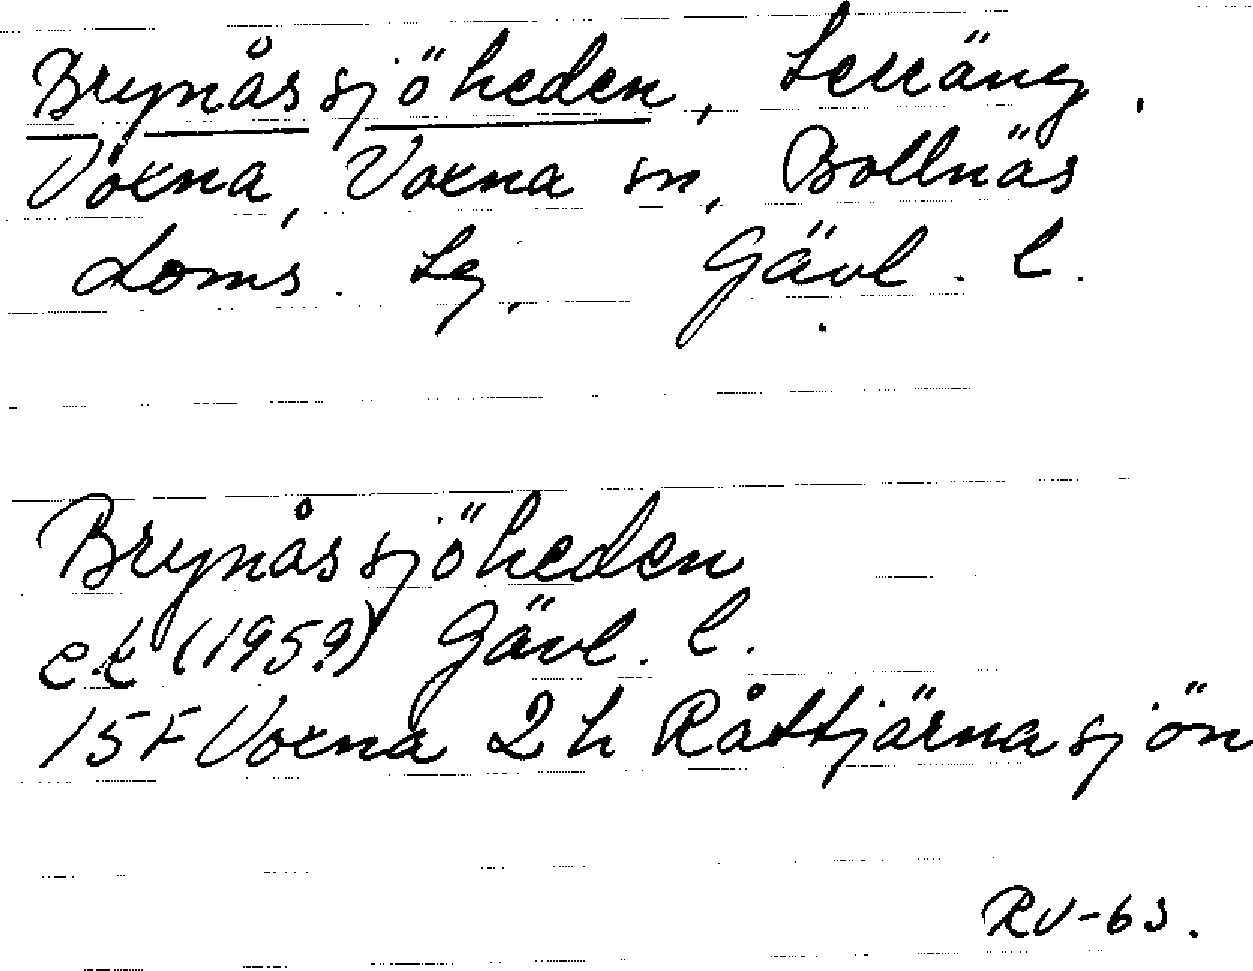 Brynåssjöheden, Lerräng.
Voxna, Voxna sn, Bollnäs
doms. Lg, Gävl. l.
Brynåssjöheden
ek (1959) Gävl. l.
15F Voxna 2h Råttjärnasjön
RV-63.